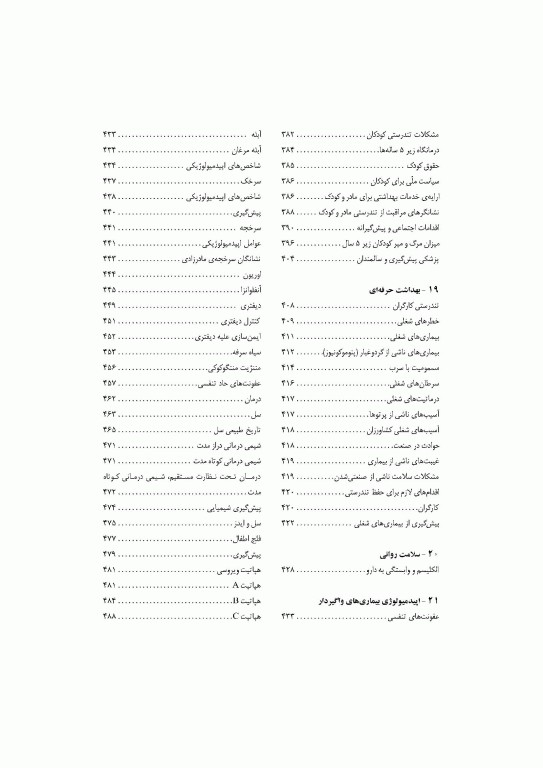 مشکلات تندرستی کودکان .................... ۳۸۲
درمانگاه زیر ۵ ساله‌ها........................ ۳۸۴
حقوق کودک ............................... ۳۸۵
سیاست ملّی برای کودکان ................... ۳۸۶
ارایه‌ی خدمات بهداشتی برای مادر و کودک ........ ۳۸۶
نشانگرهای مراقبت از تندرستی مادر و کودک ...... ۳۸۸
اقدامات اجتماعی و پیش‌گیرانه ................. ۳۹۰
میزان مرگ و میر کودکان زیر ۵ سال ............. ۳۹۶
پزشکی پیش‌گیری و سالمندان .................. ۴۰۴
۱۹ - بهداشت حرفه‌ای
تندرستی کارگران ........................... ۴۰۸
خطرهای شغلی .............................. ۴۰۹
بیماری‌های شغلی ........................... ۴۱۱
بیماری‌های ناشی از گردوغبار (پنوموکونیوز)........ ۴۱۲
مسمومیت با سرب .......................... ۴۱۴
سرطان‌های شغلی........................... ۴۱۶
درماتیت‌های شغلی.......................... ۴۱۷
آسیب‌های ناشی از پرتوها..................... ۴۱۷
آسیب‌های شغلی کشاورزان ................... ۴۱۸
حوادث در صنعت........................... ۴۱۸
غیبت‌های ناشی از بیماری .................... ۴۱۹
مشکلات سلامت ناشی از صنعتی‌شدن........... ۴۱۹
اقدام‌های لازم برای حفظ تندرستی.............. ۴۲۰
کارگران................................... ۴۲۰
پیش‌گیری از بیماری‌های شغلی ................ ۴۲۲
۲۰ - سلامت روانی
الکلیسم و وابستگی به دارو.................... ۴۲۸
۲۱ - اپیدمیولوژی بیماری‌های واگیردار
عفونت‌های تنفسی.......................... ۴۳۳
آبله ..................................... ۴۳۳
آبله مرغان ................................ ۴۳۴
شاخص‌های اپیدمیولوژیکی ................... ۴۳۴
سرخک................................... ۴۳۷
شاخص‌های اپیدمیولوژیکی ................... ۴۳۸
پیش‌گیری................................. ۴۴۰
سرخجه .................................. ۴۴۱
عوامل اپیدمیولوژیکی........................ ۴۴۱
نشانگان سرخجه‌ی مادرزادی .................. ۴۴۳
اوریون ................................... ۴۴۴
آنفلوانزا................................... ۴۴۵
دیفتری .................................. ۴۴۹
کنترل دیفتری ............................. ۴۵۱
ایمن‌سازی علیه دیفتری....................... ۴۵۲
سیاه سرفه................................. ۴۵۳
مننژیت مننگوکوکی.......................... ۴۵۶
عفونت‌های حاد تنفسی....................... ۴۵۷
درمان ................................... ۴۶۲
سل...................................... ۴۶۳
تاریخ طبیعی سل ........................... ۴۶۵
شیمی درمانی دراز مدت ...................... ۴۷۱
شیمی درمانی کوتاه مدت ..................... ۴۷۱
درمـان تحـت نـظارت مسـتقیم، شـیمی درمـانی کـوتاه
مدت..................................... ۴۷۲
پیش‌گیری شیمیایی ......................... ۴۷۴
سل و ایدز................................. ۴۷۵
فلج اطفال................................. ۴۷۷
پیش‌گیری................................. ۴۷۹
هپاتیت ویروسی ............................ ۴۸۱
هپاتیت A ................................ ۴۸۱
هپاتیت B................................. ۴۸۴
هپاتیت C................................. ۴۸۸